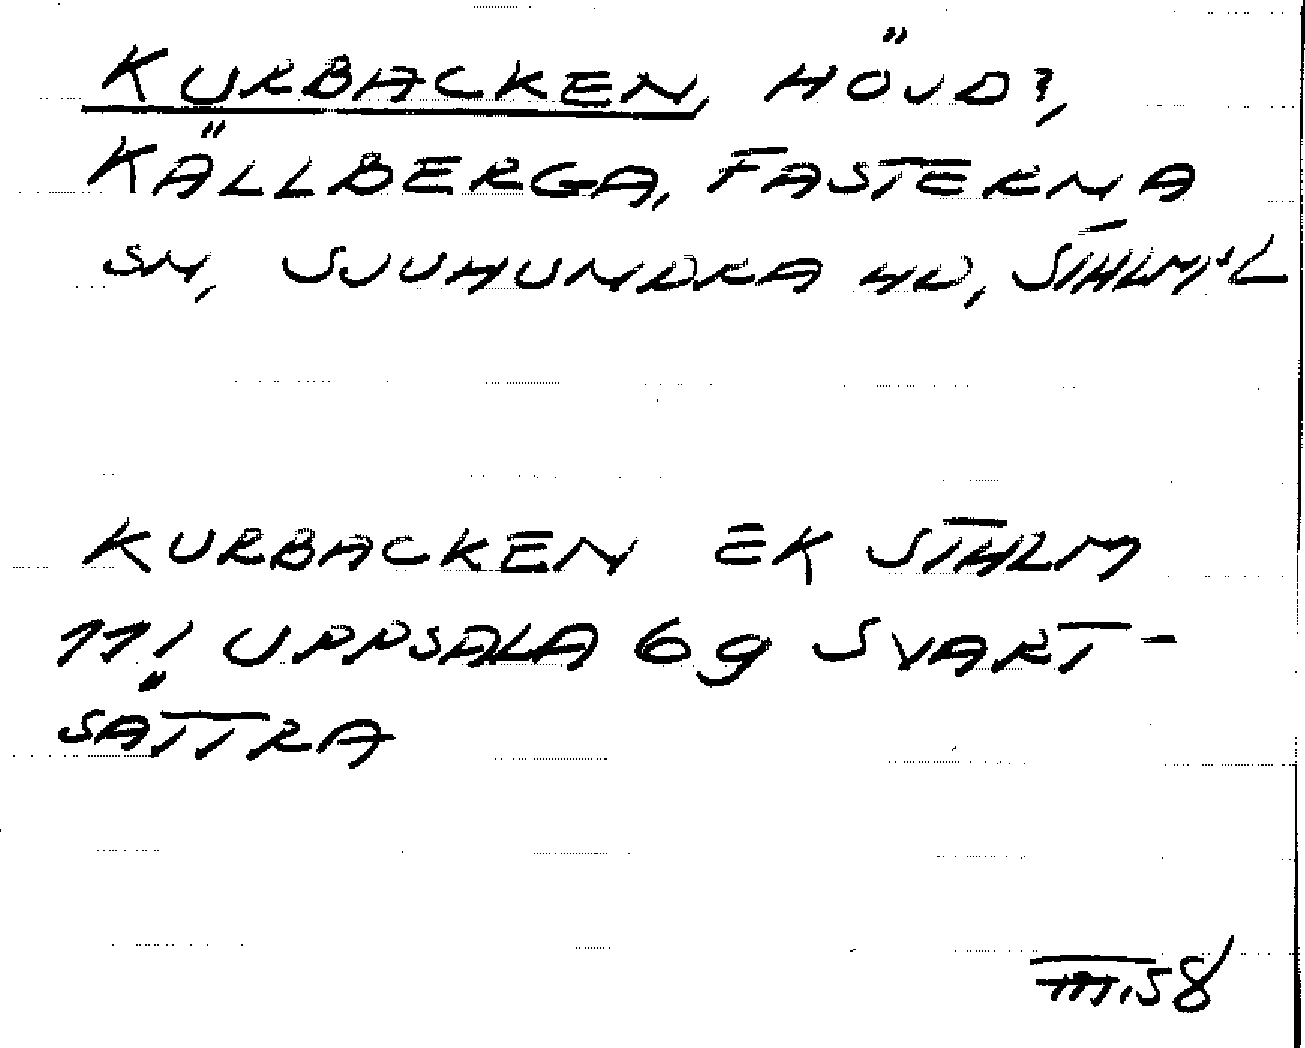 KURBACKEN, HÖJD?,
KÄLLBERGA, FASTERNA
SN, SJUHUNDRA HD, STHLM:S L
KURBACKEN EK STHLM
11I UPPSALA 6g SVART-
SÄTTRA